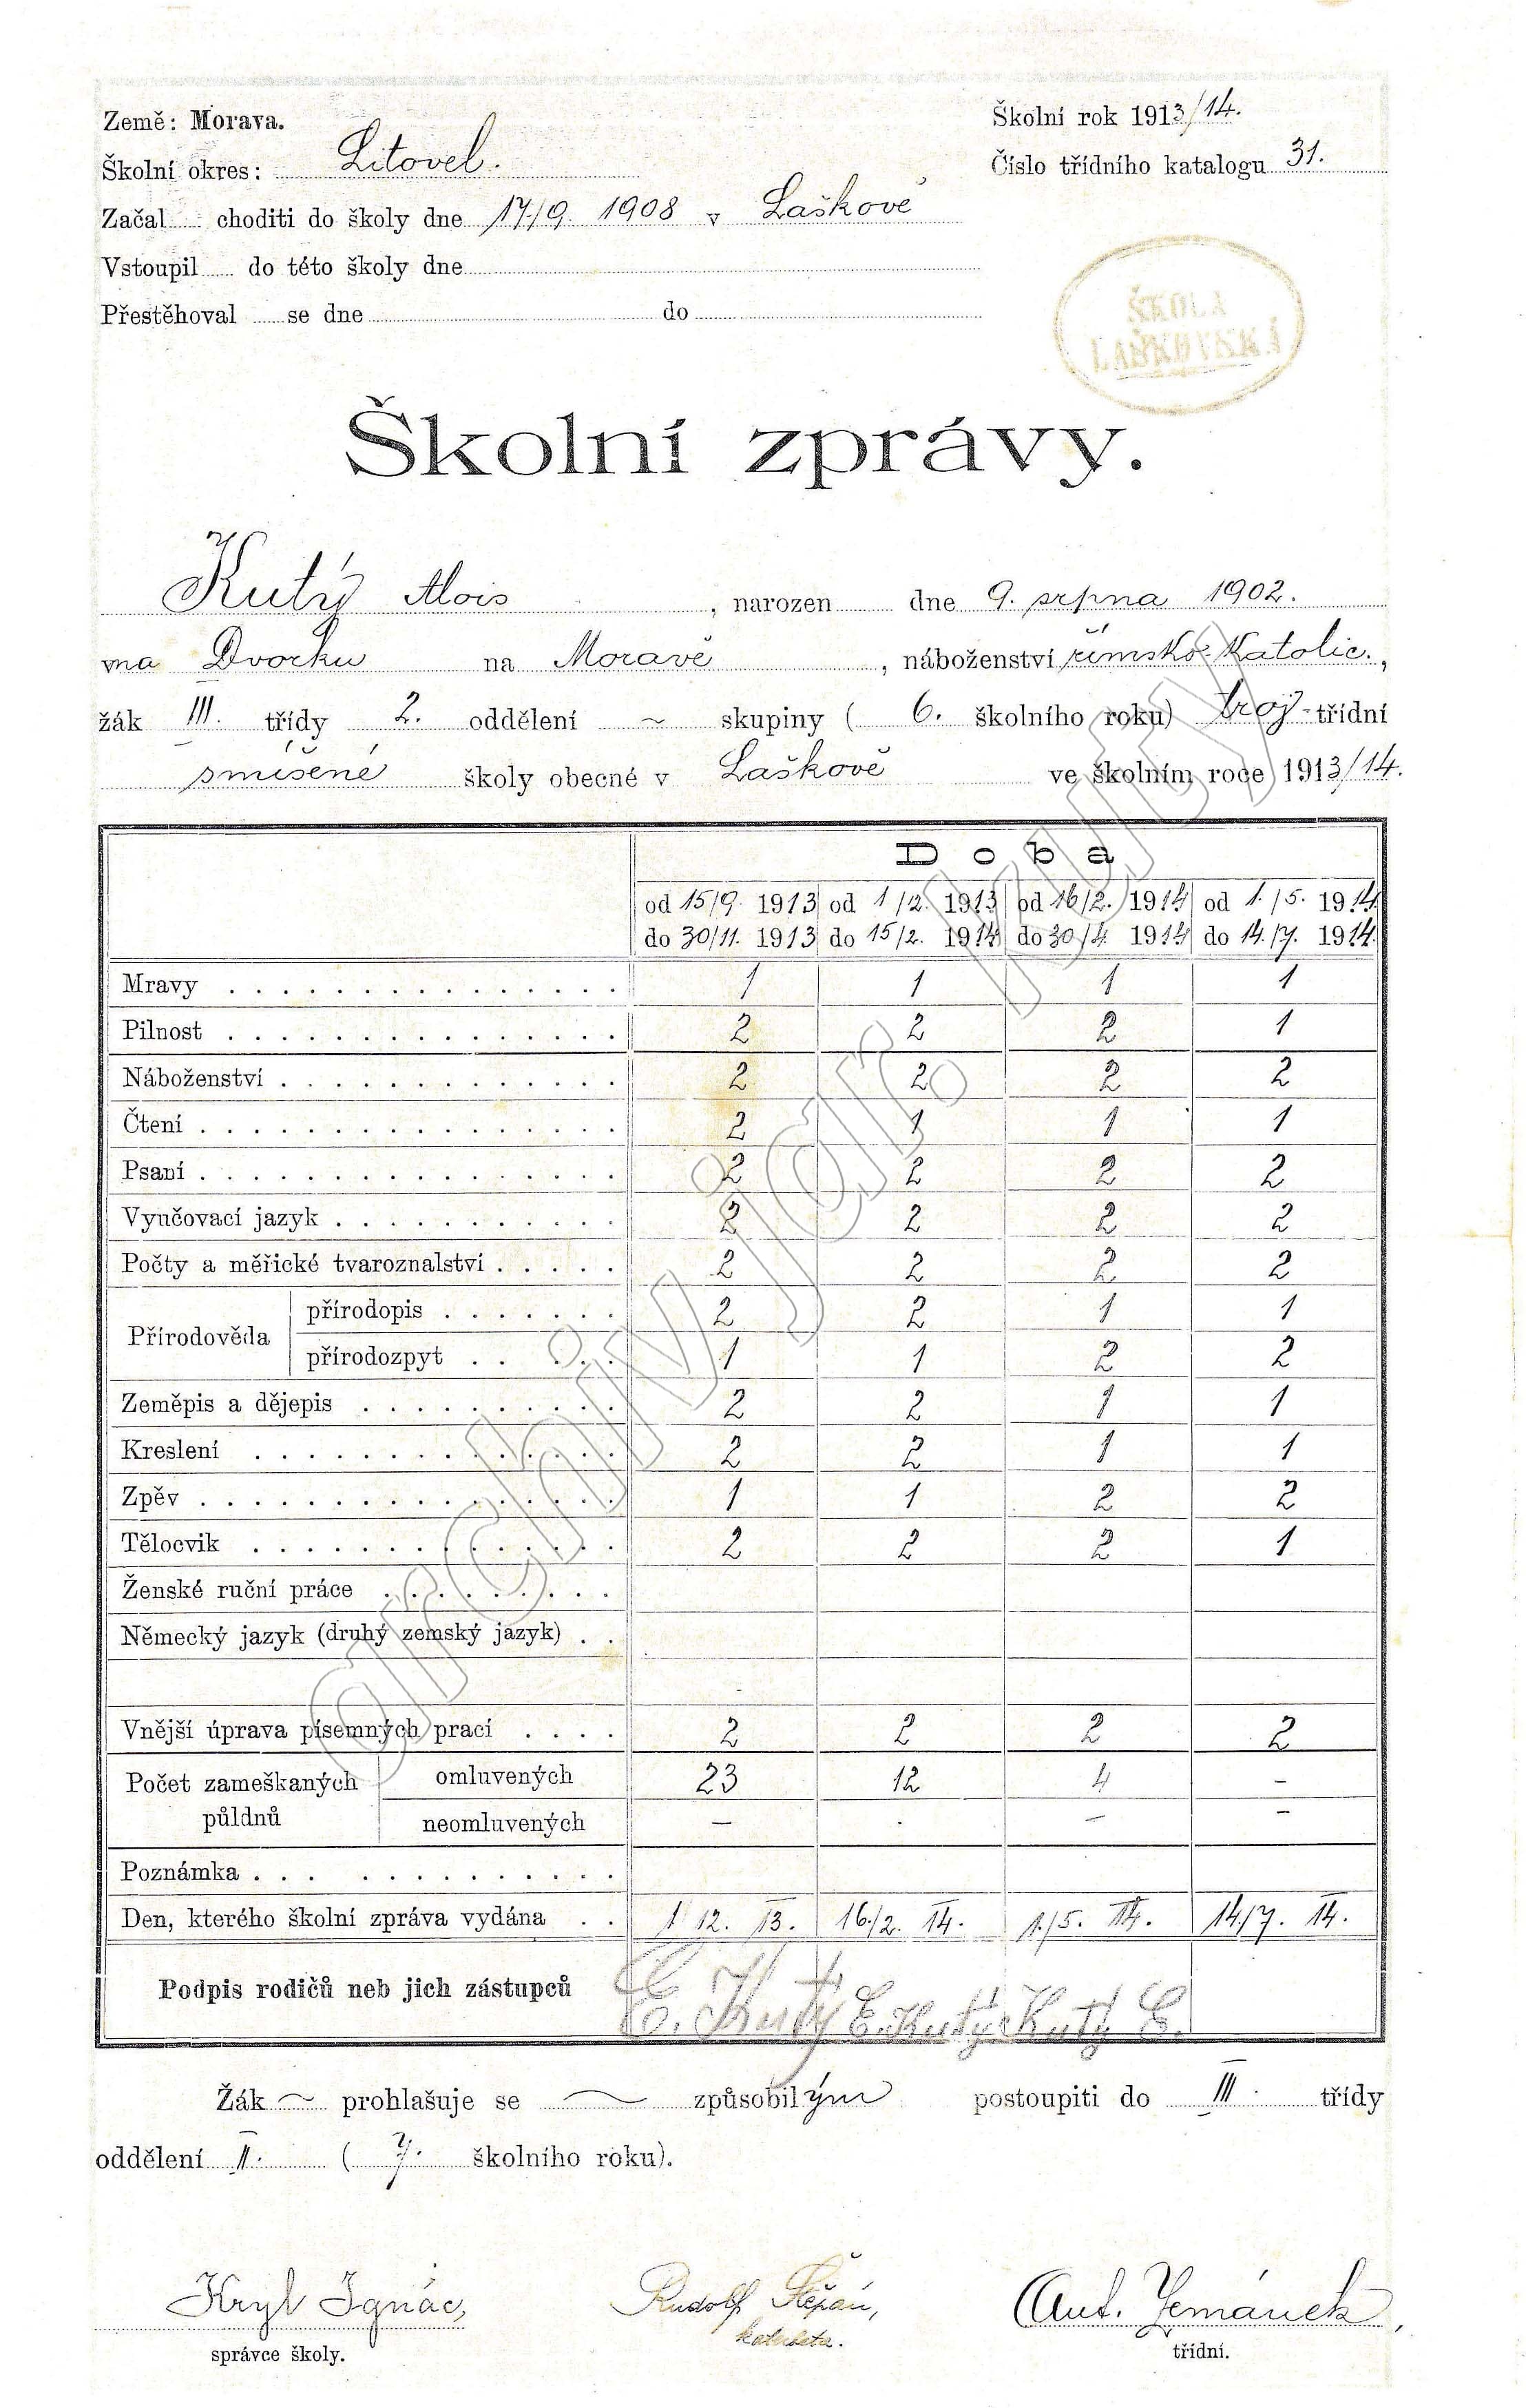 Země: Morava.
Školní rok 1913/14.
Školní okres: Litovel.
Číslo třídního katalogu 31.
Začal choditi do školy dne 17./9. 1908 v Laškově
Vstoupil do této školy dne
Přestěhoval se dne do
ŠKOLA
LAŠKOVSKÁ
Školní zprávy.
Kutý Alois, narozen dne 9. srpna 1902.
na Dvorku na Moravě, náboženství římsko-katolic.,
žák III. třídy 2. oddělení ~ skupiny ( 6. školního roku) troj-třídní
smíšené školy obecné v Laškově ve školním roce 1913/14.
Doba
od 15/9. 1913 od 1/12. 1913 od 16/2. 1914 od 1./5. 1914
do 30/11. 1913 do 15/2. 1914 do 30/4. 1914 do 14./7. 1914.
Mravy 1 1 1 1
Pilnost 2 2 2 1
Náboženství 2 2 2 2
Čtení 2 1 1 1
Psaní 2 2 2 2
Vyučovací jazyk 2 2 2 2
Počty a měřické tvaroznalství 2 2 2 2
Přírodověda přírodopis 2 2 1 1
přírodozpyt 1 1 2 2
Zeměpis a dějepis 2 2 1 1
Kreslení 2 2 1 1
Zpěv 1 1 2 2
Tělocvik 2 2 2 1
Ženské ruční práce
Německý jazyk (druhý zemský jazyk)
Vnější úprava písemných prací 2 2 2 2
Počet zameškaných půldnů omluvených 23 12 4 –
neomluvených – . – –
Poznámka
Den, kterého školní zpráva vydána 1 12. 13. 16./2. 14. 1./5. 14. 14/7. 14.
Podpis rodičů neb jich zástupců Kutý E. Kutý Kutý E.
Žák ~ prohlašuje se ~ způsobilým postoupiti do III. třídy
oddělení II. ( 7. školního roku).
Kryl Ignác, Rudolf Štěpán, Ant. Zemánek,
katecheta.
správce školy. třídní.
archiv jar. kutý